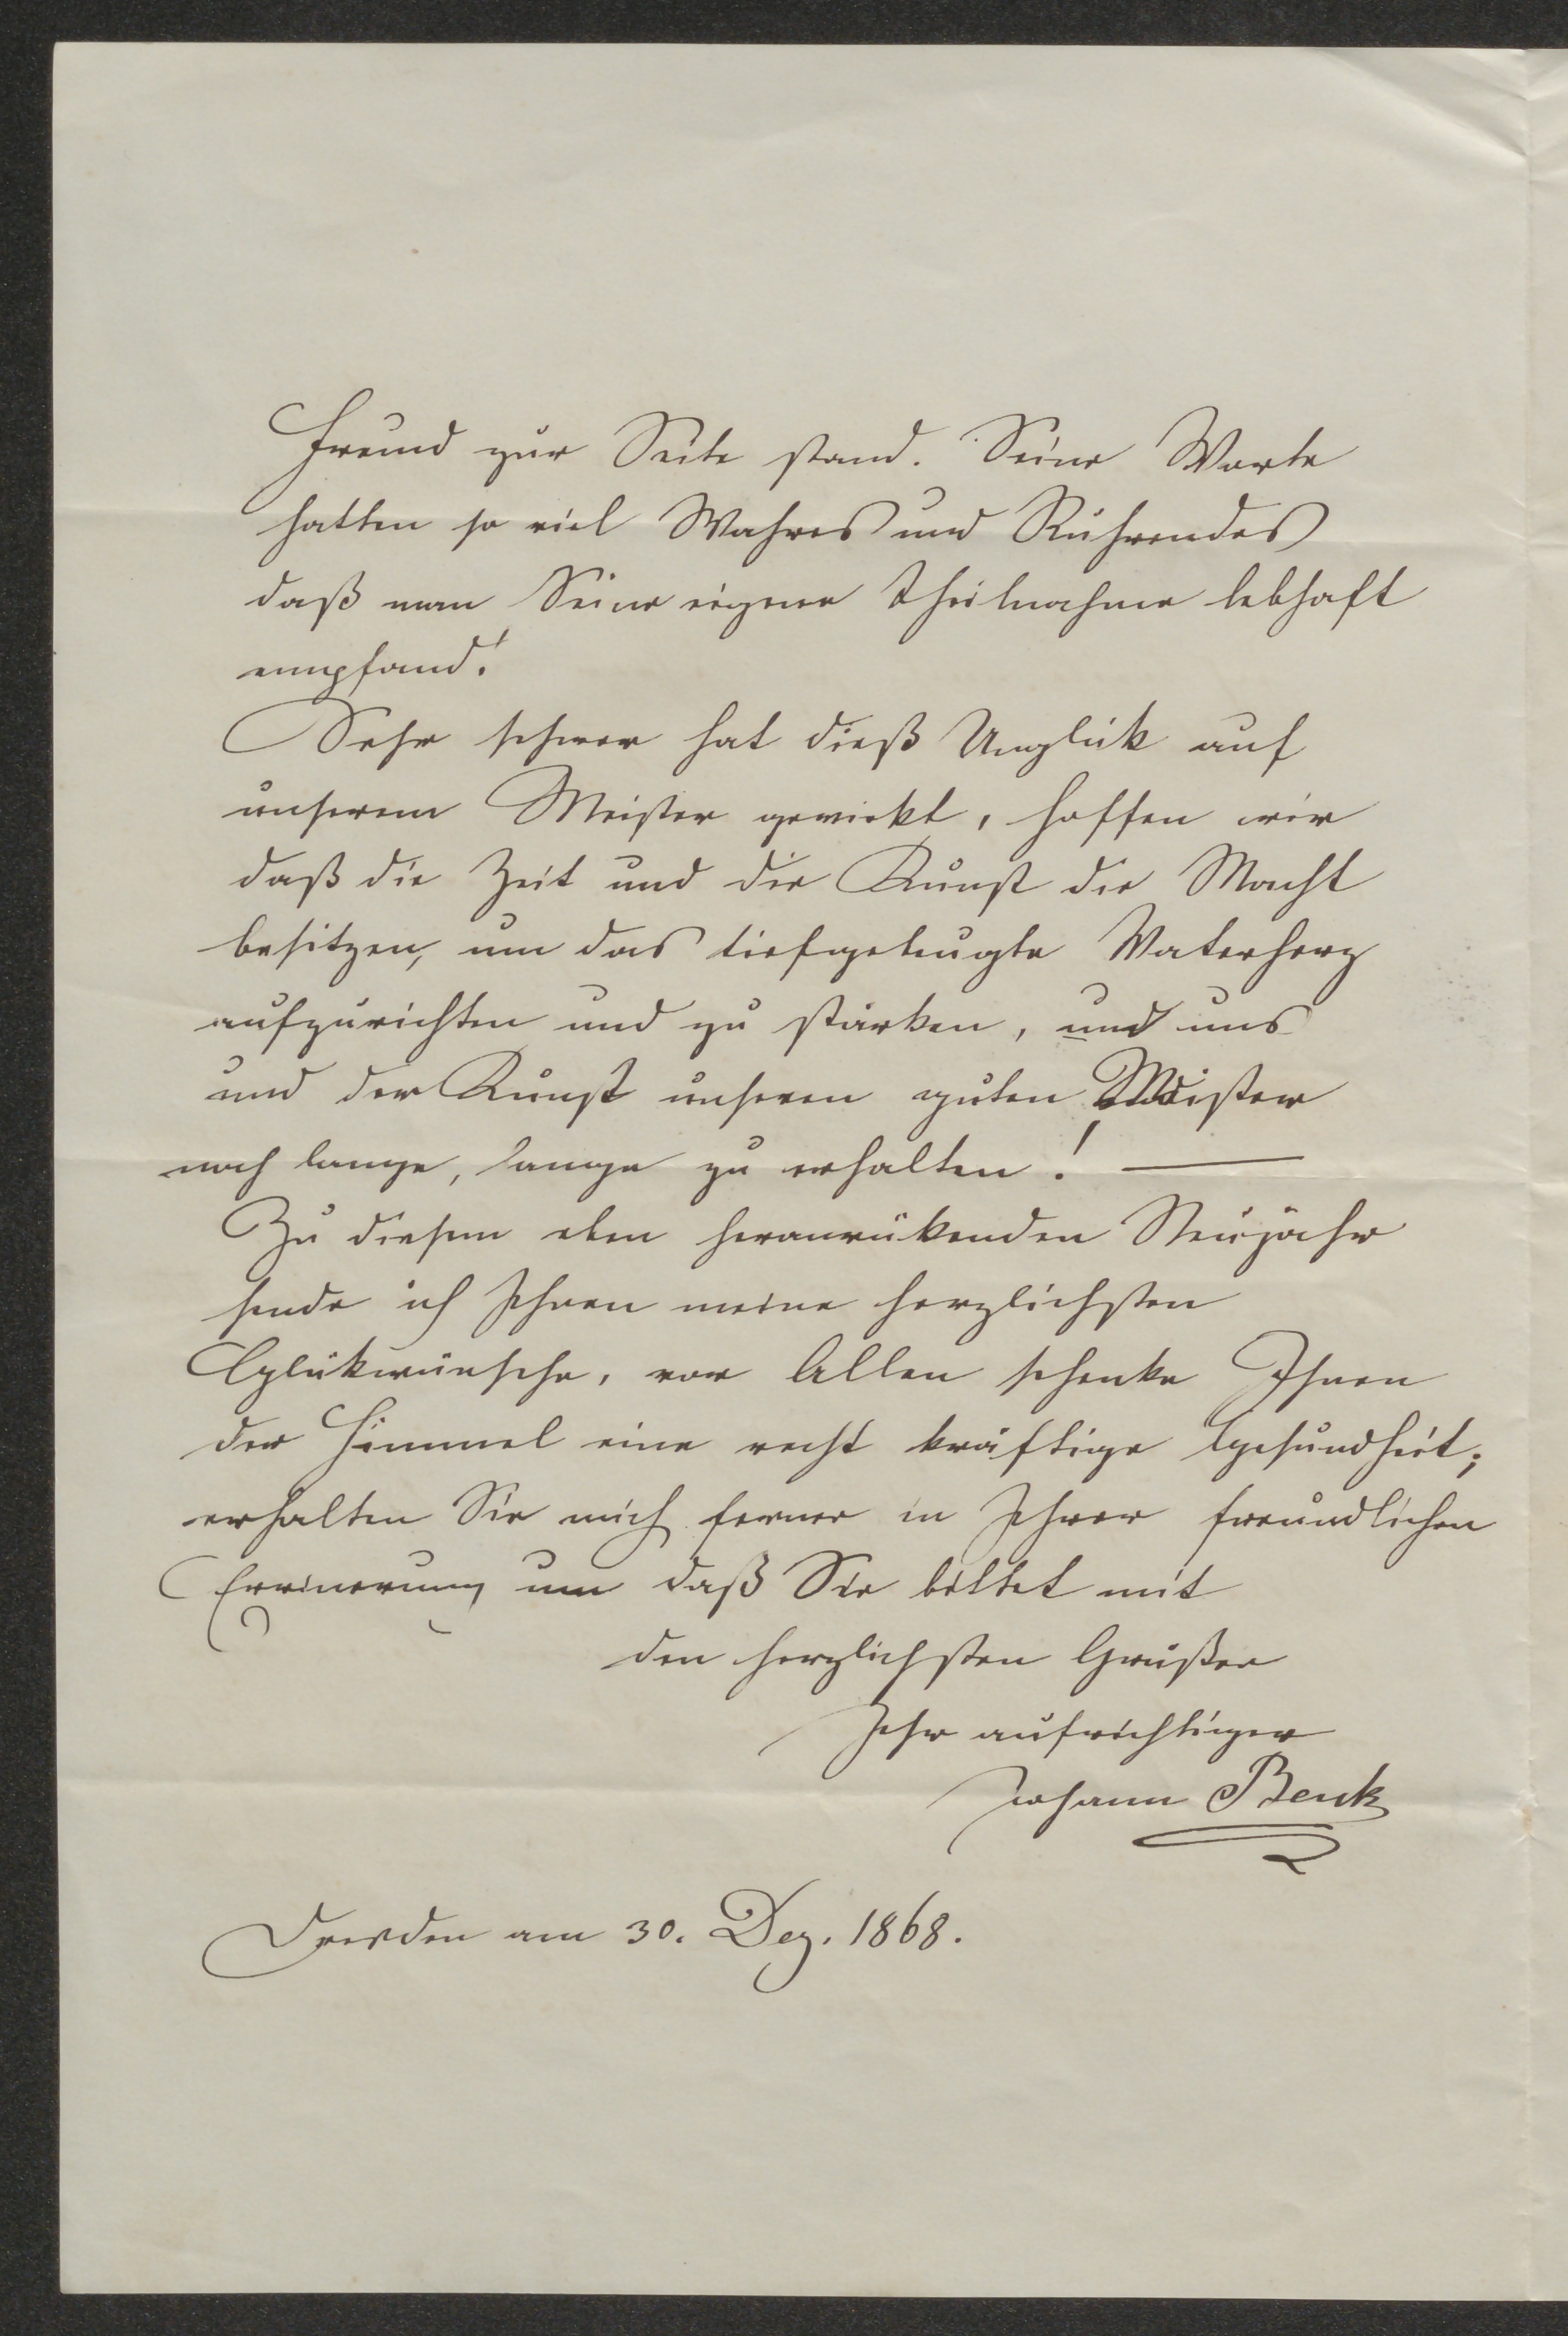 Freund zur Seite stand. Seine Worte
hatten so viel Wahres und Rührendes
daß man Seine eigene Theilnahme lebhaft
empfand!
Sehr schwer hat dieß Unglük auf
unserem Meister gewirkt, hoffen wir
daß die Zeit und die Kunst die Macht
besitzen, um das tiefgebeugte Vaterherz
aufzurichten und zu stärken, und uns
und der Kunst unseren guten Meister
noch lange, lange zu erhalten! —
Zu diesem eben heranrükenden Neujahr
sende ich Ihnen meine herzlichsten
Glükwünsche, vor Allen schenke Ihnen
der Himmel eine recht kräftige Gesundheit;
erhalten Sie mich ferner in Ihrer freundlichen
Errinerung um daß Sie bittet mit
den herzlichsten Grüßen
Ihr aufrichtiger
Johann Benk
Dresden am 30. Dez. 1868.